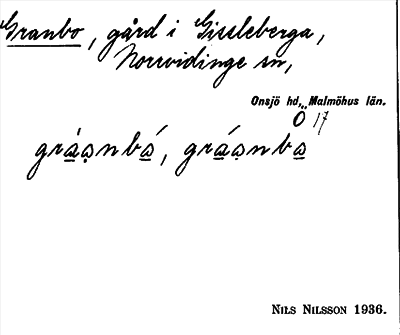 Granbo, gård i Gissleberga,
Norrvidinge sn,
Onsjö hd., Malmöhus län.
O 17
NILS NILSSON 1936.